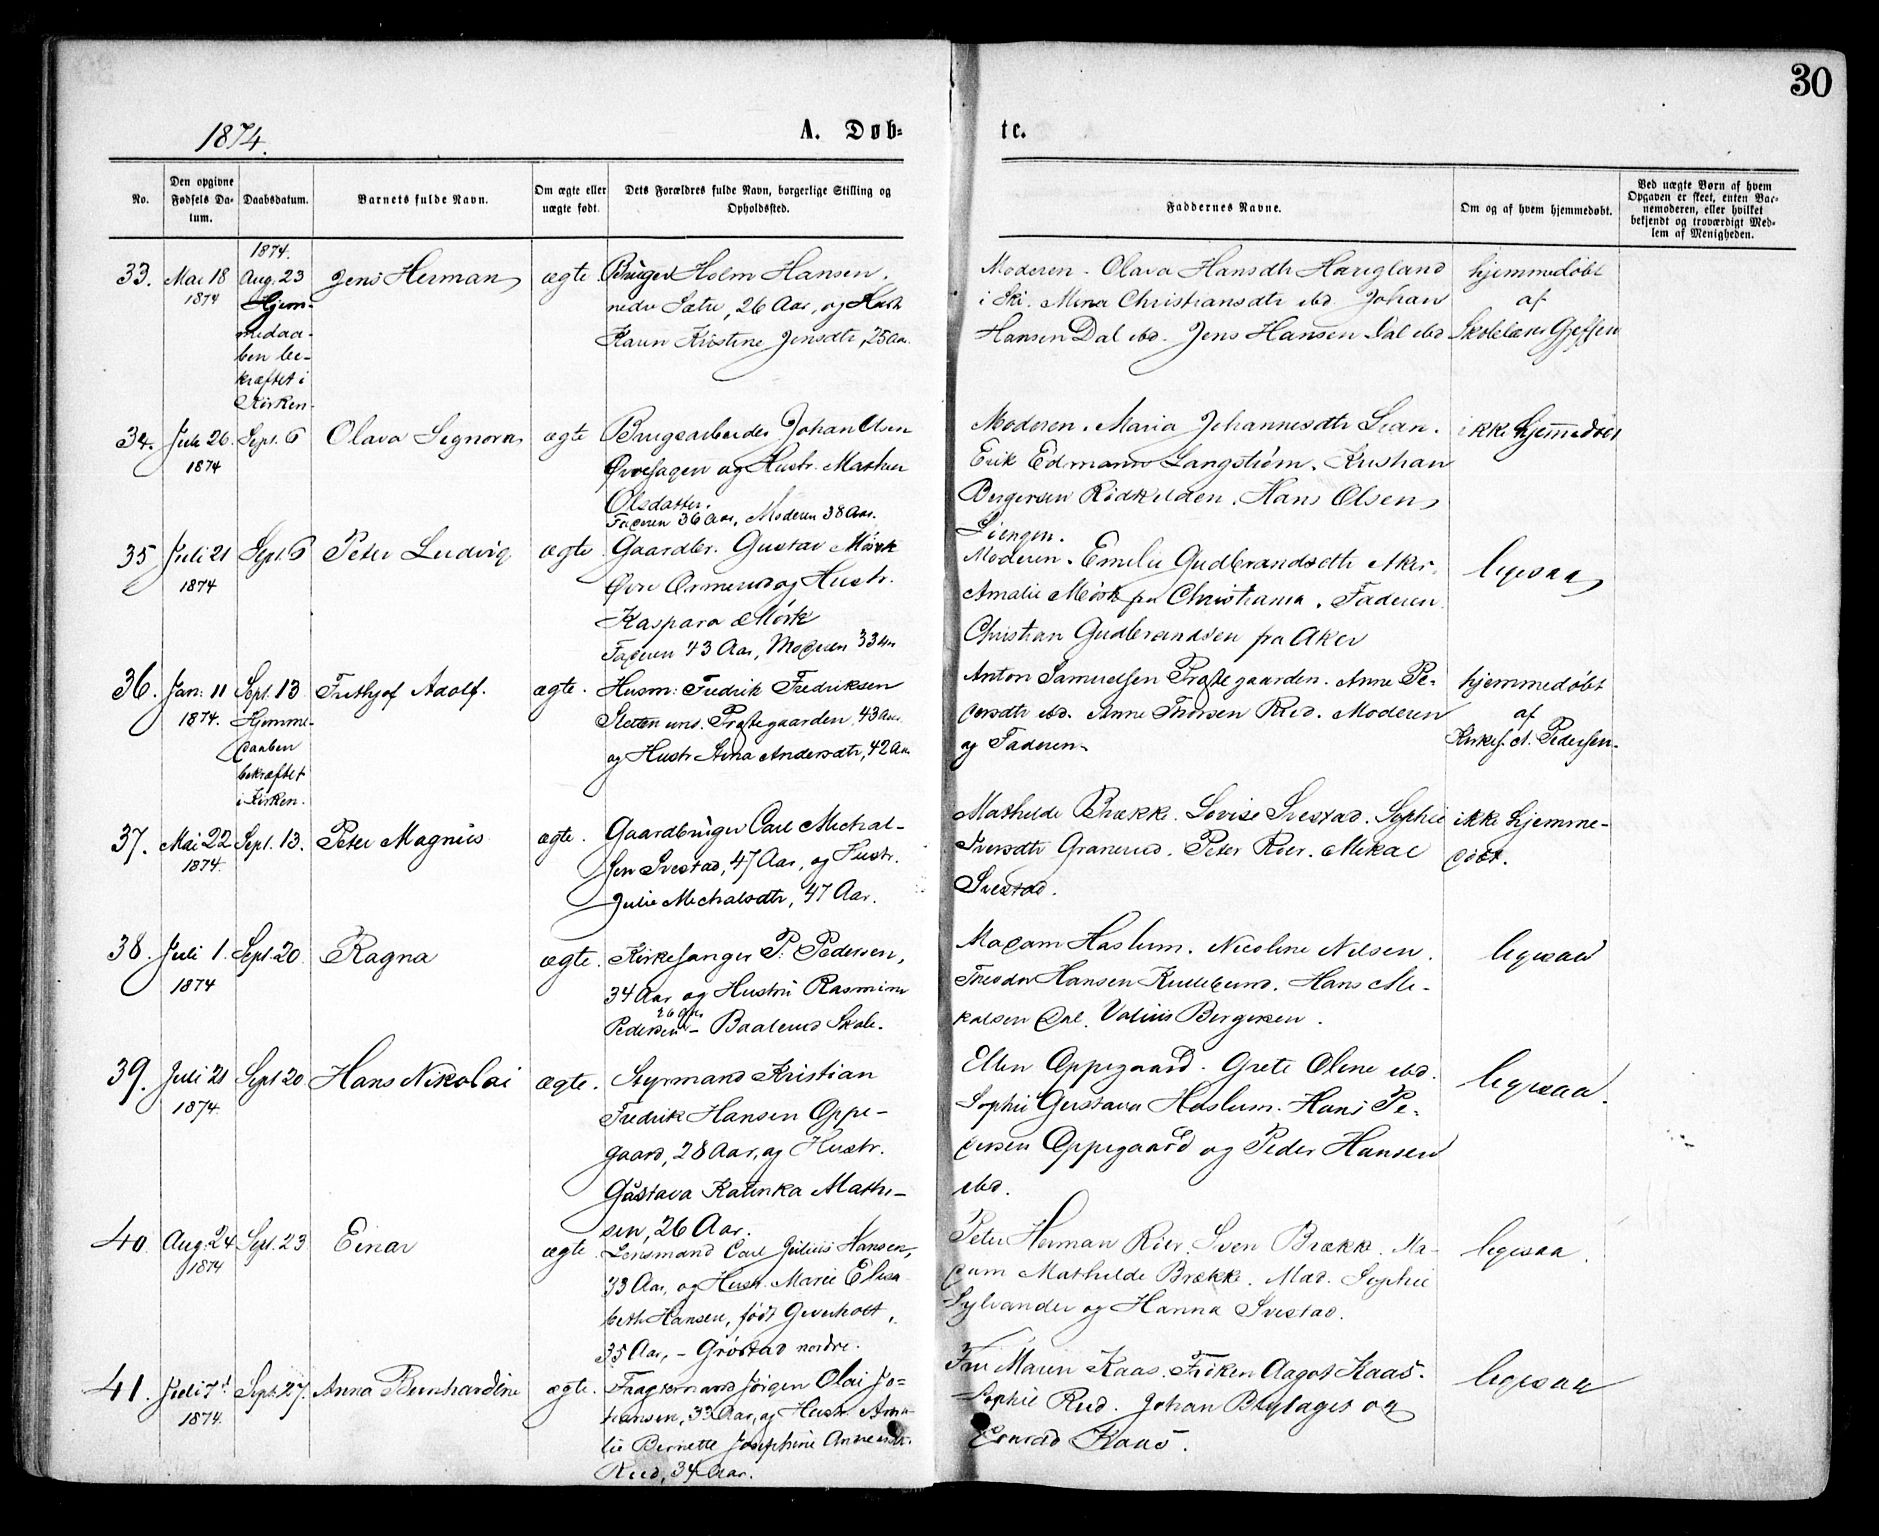 30
1874.
A. Døb-
te.
No.
Den opgivne Fødsels Datum.
Daabsdatum.
Barnets fulde Navn.
Om ægte eller uægte født.
Dets Forældres fulde Navn, borgerlige Stilling og Opholdssted.
Faddernes Navne.
Om og af hvem hjemmedøbt.
Ved uægte Børn af hvem Opgaven er skeet, enten Barnemoderen, eller hvilket bekjendt og troværdigt Medlem af Menigheden.
33. Mai 18 1874
1874. Aug. 23
Hjem-
medaa-
ben be-
kræftet i
Kirken.
Jens Herman
ægte.
Bruger Holm Hansen,
nedre Sætre, 26 Aar, og Hustr.
Karen Kristine Jensdtr, 25 Aar.
Moderen. Olava Hansdtr Haugland
i Ski. Mina Christiansdtr ibd. Johan
Hansen Dal ibd. Jens Hansen Dal ibd
hjemmedøbt
af
Skolelærer
34. Juli 26. 1874
Sept. 6
Olava Signora
ægte
Brugsarbeider Johan Olsen
og Hustr. Mathea
Olsdatter.
Faderen 36 Aar, Moderen 38 Aar.
Moderen. Maria Johannesdtr Lian.
Erik Edmann Langstrøm. Kristian
Bergersen Rødkilden. Hans Olsen
Liengen.
ikke hjemmedøbt
35 Juli 21 1874
Sept. 6
Peter Ludvig
ægte
Gaardbr. Gustav Mørk
Øvre Ormerud og Hustr.
Kaspara Mørk
Faderen 43 Aar, Moderen 33 Aar
Moderen. Emelie Gudbrandsdtr Aker.
Amalie Mørk fra Christiania. Faderen.
Christian Gudbrandsen fra Aker
ligesaa
36. Jan: 11 1874.
Sept. 13
Hjemme-
daaben
bekræftet
i Kirken.
Frithjof Adolf.
ægte.
Husm: Fredrik Fredriksen
Sletten und. Præstegaarden, 43 Aar
og Hustr. Anna Andersdtr, 42 Aar
Anton Samuelsen Præstegaarden. Anne Pe-
dersdtr ibd. Anne Thorsen Rud. Moderen
og Faderen.
hjemmedøbt
af
Kirkes. Pedersen.
37. Mai 22 1874.
Sept. 13.
Peter Magnus
ægte.
Gaardbruger Carl Michal-
sen Svestad, 47 Aar, og Hustr.
Julie Michalsdtr, 47 Aar.
Mathilde Brække. Lovise Svestad. Sophie
Iversdtr Granerud. Peter Roer. Mikal
Svestad.
ikke hjemme-
døbt.
38. Juli 1. 1874
Sept. 20
Ragna
ægte.
Kirkesanger P. Pedersen,
34 Aar og Hustru Rasmine
Pedersen 26 Aar – Baalerud Skole.
Madam Haslum. Nicoline Nilsen.
Theodor Hansen Kullebund. Hans Mi-
kalsen Dal. Valius Bergersen.
ligesaa
39. Juli 21 1874.
Sept 20
Hans Nikolai
ægte.
Styrmand Kristian
Fredrik Hansen Oppe-
gaard, 28 Aar, og Hustr.
Gustava Kalinka Mathi-
sen, 26 Aar.
Ellen Oppegaard. Grete Oline ibd.
Sophie Gustava Haslum. Hans Pe-
dersen Oppegaard og Peder Hansen
ibd.
ligesaa.
40. Aug. 24 1874
Sept. 23
Einar
ægte.
Lensmand Carl Julius Hansen,
33 Aar, og Hustr. Marie Elisa-
beth Hansen, født
35 Aar, – Grøstad nordre.
Peter Herman Roer. Sven Brække. Ma-
dam Mathilde Brække. Mad. Sophie
Sylvander og Hanna Svestad.
ligesaa.
41. Juli 7d 1874.
Sept. 27.
Anna Bernhardine
ægte.
Jørgen Olai Jo-
hansen, 33 Aar, og Hustr. Ama-
lie Bernette Josephine
Rud, 34 Aar.
Fru Maren Kaas. Frøken Aagot Kaas.
Sophie Rud. Johan og
Conrad Kaas.
ligesaa